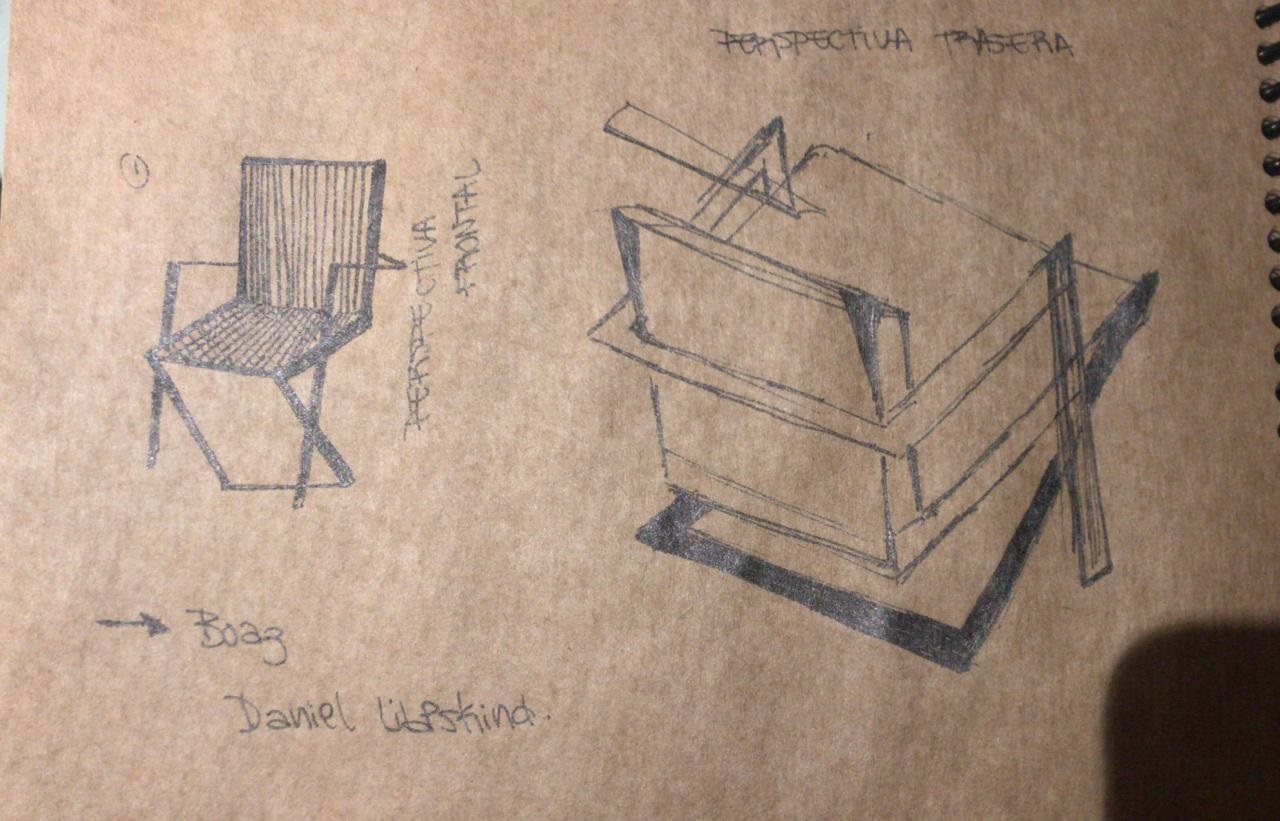 PERSPECTIVA TRASERA
PERSPECTIVA
FRONTAL
→ Boaz
Daniel Libeskind.